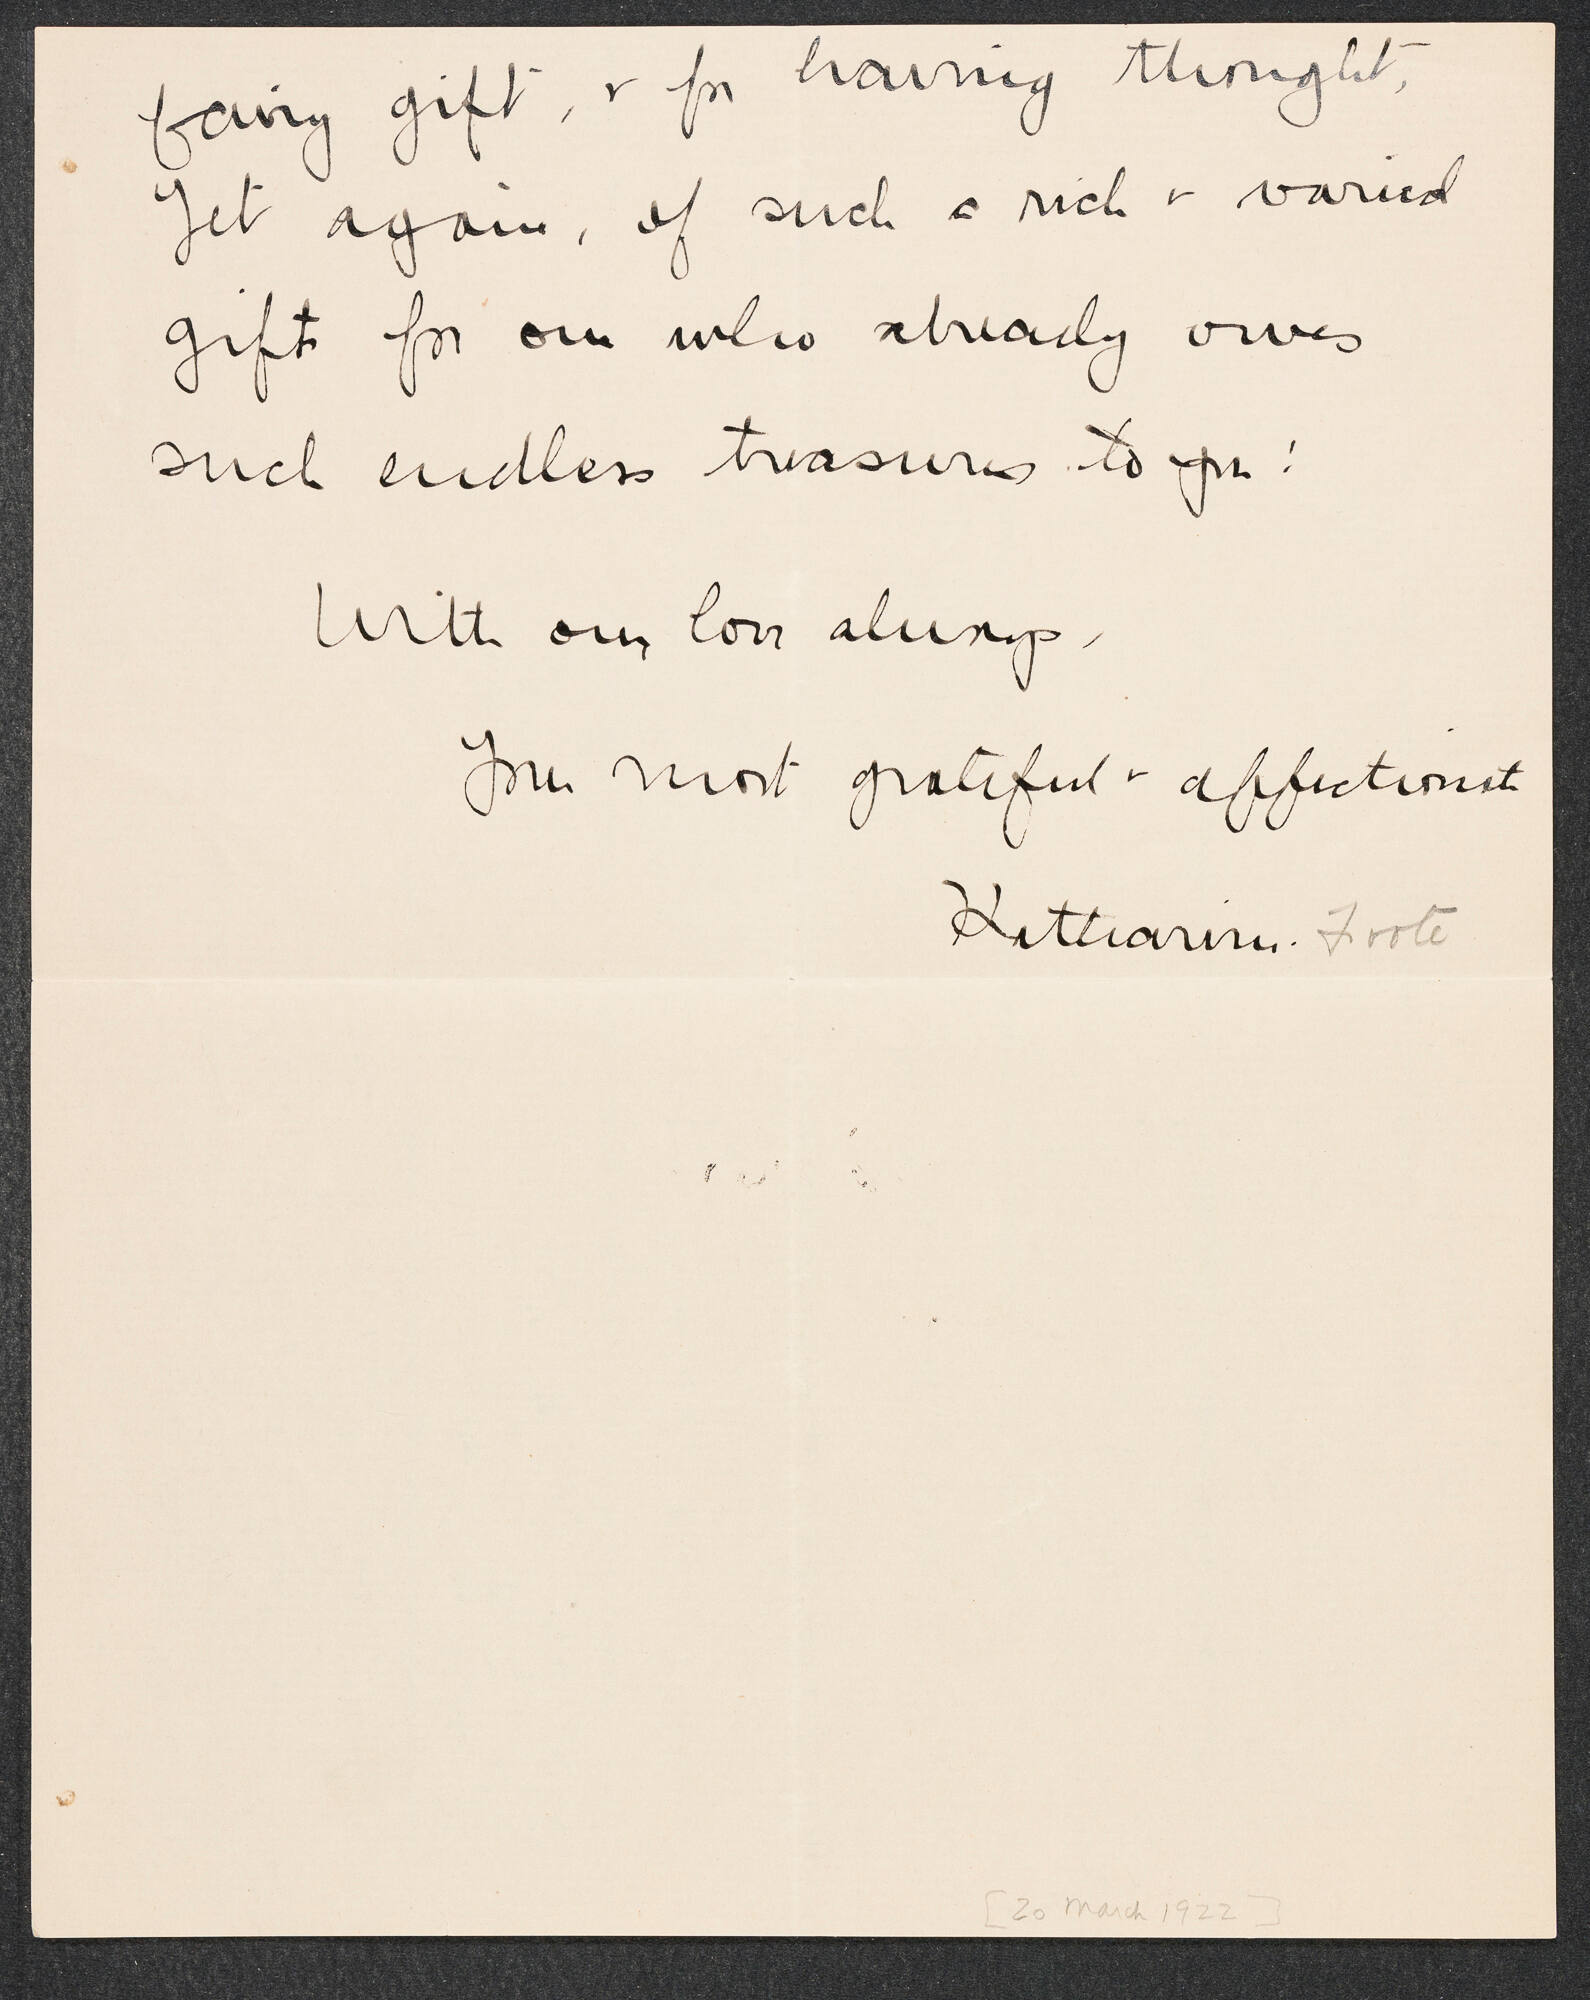 fairy gift, & for having thought,
Yet again, of such a rich & varied
gift for one who already owes
such endless treasures to you!
With our love always,
Your most grateful & affectionate
Katharine. Foote
[20 March 1922]